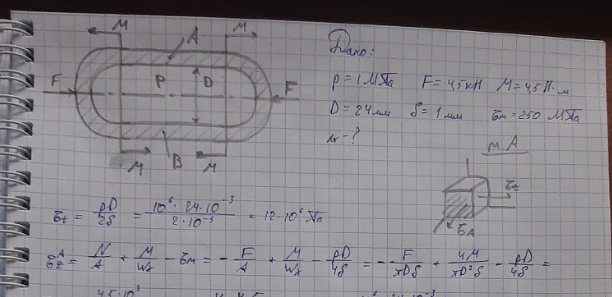 M M
A
F P D F
B
M M
Дано:
p = 1 МПа F = 4,5 кН M = 45 Н·м
D = 24 мм δ = 1 мм σт = 250 МПа
n - ?
т. A
σt
σA
σt = pD/2δ = 10⁶ · 24·10⁻³ / 2·10⁻³ = 12·10⁶ Па
σz^A = N/A + M/Wx - σm = - F/A + M/Wx - pD/4δ = - F/πDδ + 4M/πD²δ - pD/4δ =